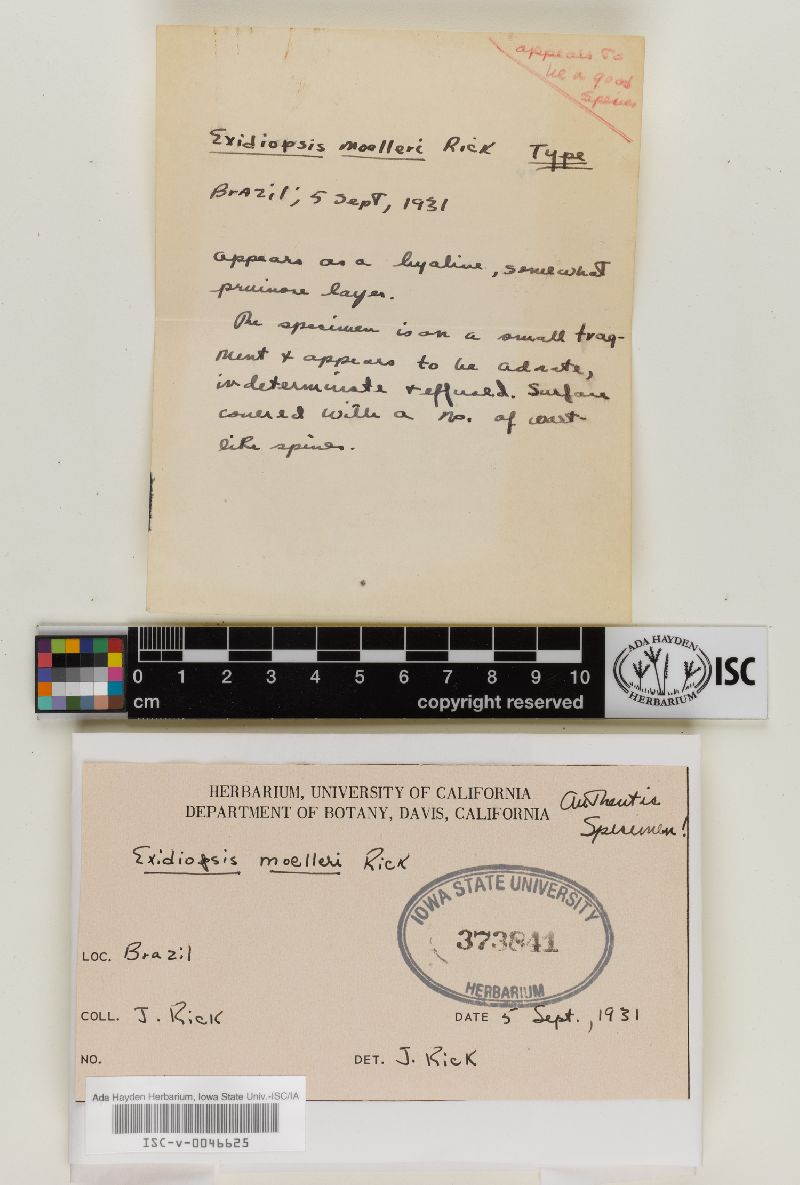 appears to
be a good
species
Exidiopsis moelleri Rick Type
Brazil, 5 Sept, 1931
appears as a hyaline, somewhat
pruinose layer.
The specimen is on a small frag-
ment & appears to be adnate,
indeterminate & effused. Surface
covered with a no. of wart-
like spines.
0 1 2 3 4 5 6 7 8 9 10
cm copyright reserved
ADA HAYDEN
HERBARIUM
ISC
HERBARIUM, UNIVERSITY OF CALIFORNIA
DEPARTMENT OF BOTANY, DAVIS, CALIFORNIA
Authentic
Specimen!
Exidiopsis moelleri Rick
IOWA STATE UNIVERSITY
373841
HERBARIUM
LOC. Brazil
COLL. J. Rick
DATE 5 Sept., 1931
NO.
DET. J. Rick
Ada Hayden Herbarium, Iowa State Univ.-ISC/IA
ISC-v-0046625